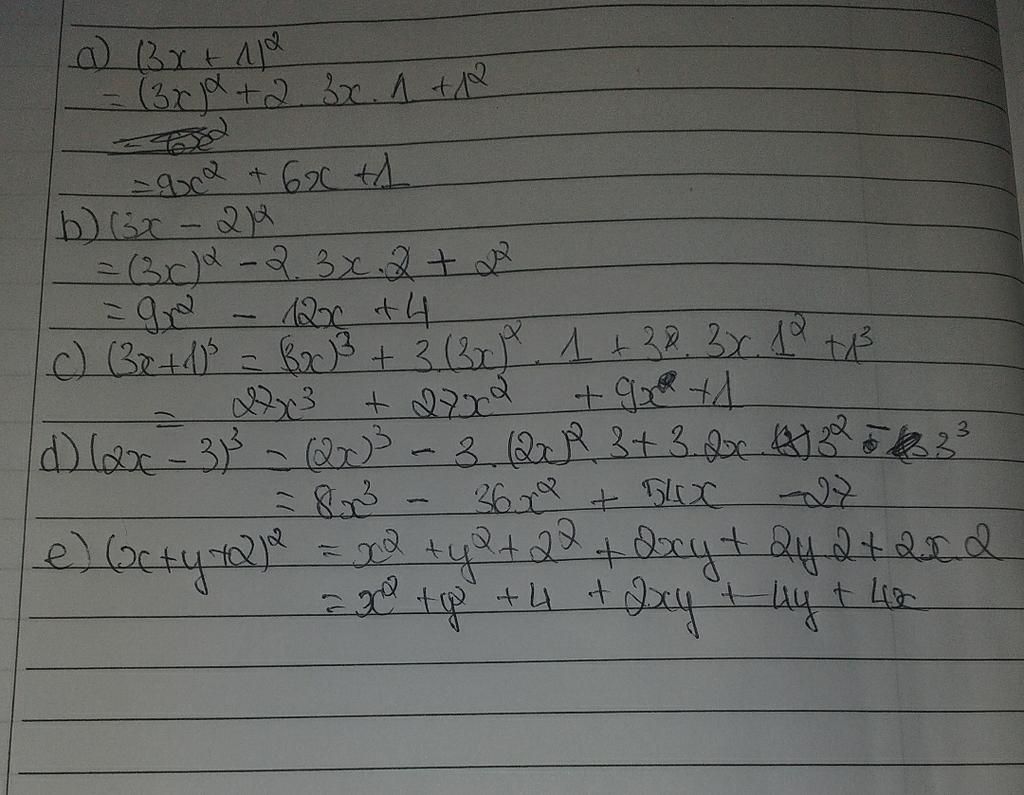 a) (3x + 1)²
= (3x)² + 2. 3x. 1 + 1²
= 9x² + 6x + 1
b) (3x - 2)²
= (3x)² - 2. 3x.2 + 2²
= 9x² - 12x + 4
c) (3x+1)³ = (3x)³ + 3.(3x)². 1 + 3. 3x. 1² + 1³
= 27x³ + 27x² + 9x + 1
d) (2x - 3)³ = (2x)³ - 3. (2x)². 3 + 3. 2x. 3² - 3³
= 8x³ - 36x² + 54x - 27
e) (x+y+2)² = x² + y² + 2² + 2xy + 2y.2 + 2x.2
= x² + y² + 4 + 2xy + 4y + 4x